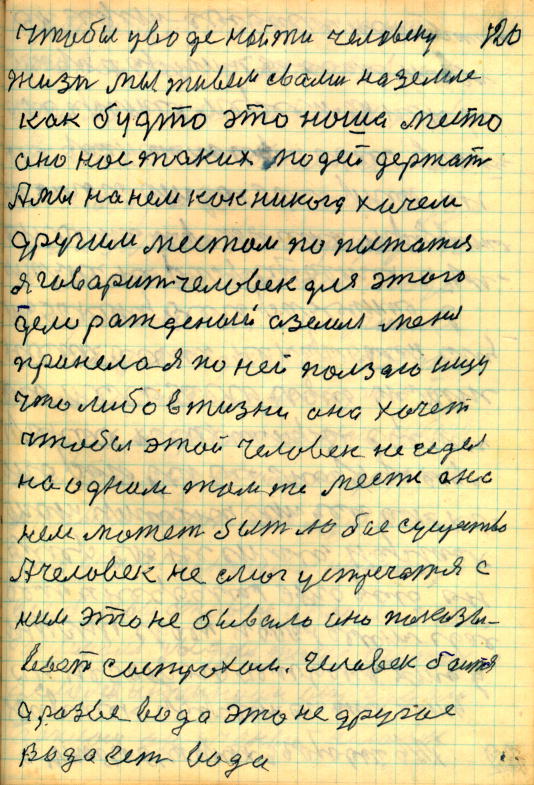 чтобы уводе найти человеку 120
жизн мы живем свами наземле
как будто это наша место
оно нас таких людей держат
Амы на нем как никогд хочем
другим местом по пытатся
я говарит человек для этого
дела ражденый аземля меня
принела я по ней ползаю ищу
что либо в жизни она хочет
чтобы этой человек не седел
на одном том же месте она
нем может быт лю бое существо
Ачеловек не смог устречатя с
ним это не бывало оно показы-
вает сострахом. Человек боится
а разве вода это не другое
вода ест вода